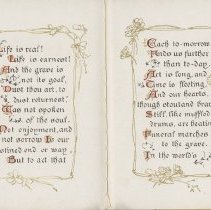 Life is real!
Life is earnest!
And the grave is
not its goal,
Dust thou art, to
dust returnest,
Was not spoken
of the soul.
Not enjoyment, and
not sorrow Is our
destined end or way
But to act that
Each to-morrow
Finds us further
than to-day.
Art is long, and
Time is fleeting,
And our hearts,
though stout and brave
Still, like muffled
drums, are beating
Funeral marches
to the grave.
In the world's